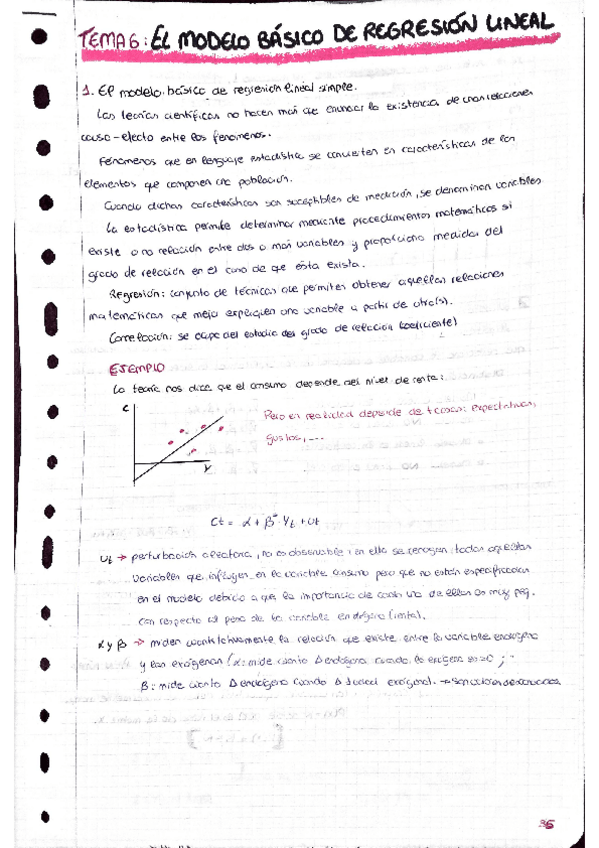 TEMA 6: EL MODELO BÁSICO DE REGRESIÓN LINEAL
1. El modelo básico de regresión lineal simple.
Las teorías científicas no hacen más que enunciar la existencia de unas relaciones
causa-efecto entre los fenómenos.
Fenómenos que en lenguaje estadístico se convierten en características de los
elementos que componen una población.
Cuando dichas características son susceptibles de medición, se denominan variables
La estadística permite determinar mediante procedimientos matemáticos si
existe o no relación entre dos o más variables y proporciona medidas del
grado de relación en el caso de que ésta exista.
Regresión: conjunto de técnicas que permiten obtener aquellas relaciones
matemáticas que mejor expliquen una variable a partir de otra(s).
Correlación: se ocupa del estudio del grado de relación (coeficiente)
EJEMPLO
La teoría nos dice que el consumo depende del nivel de renta:
C
Pero en realidad depende de + cosas: expectativas,
gustos, ...
Y
Ct = α + β · Yt + ut
ut → perturbación aleatoria, no es observable; en ella se recogen todas aquellas
variables que influyen en la variable consumo pero que no están especificadas
en el modelo debido a que la importancia de cada una de ellas es muy peq.
con respecto al peso de la variable endógena (renta).
α y β → miden cuantitativamente la relación que existe entre la variable endógena
y las exógenas (α: mide cuánto Δ endógena cuando la exógena es = 0;
β: mide cuánto Δ endógena cuando Δ 1 unidad exógena). →
36